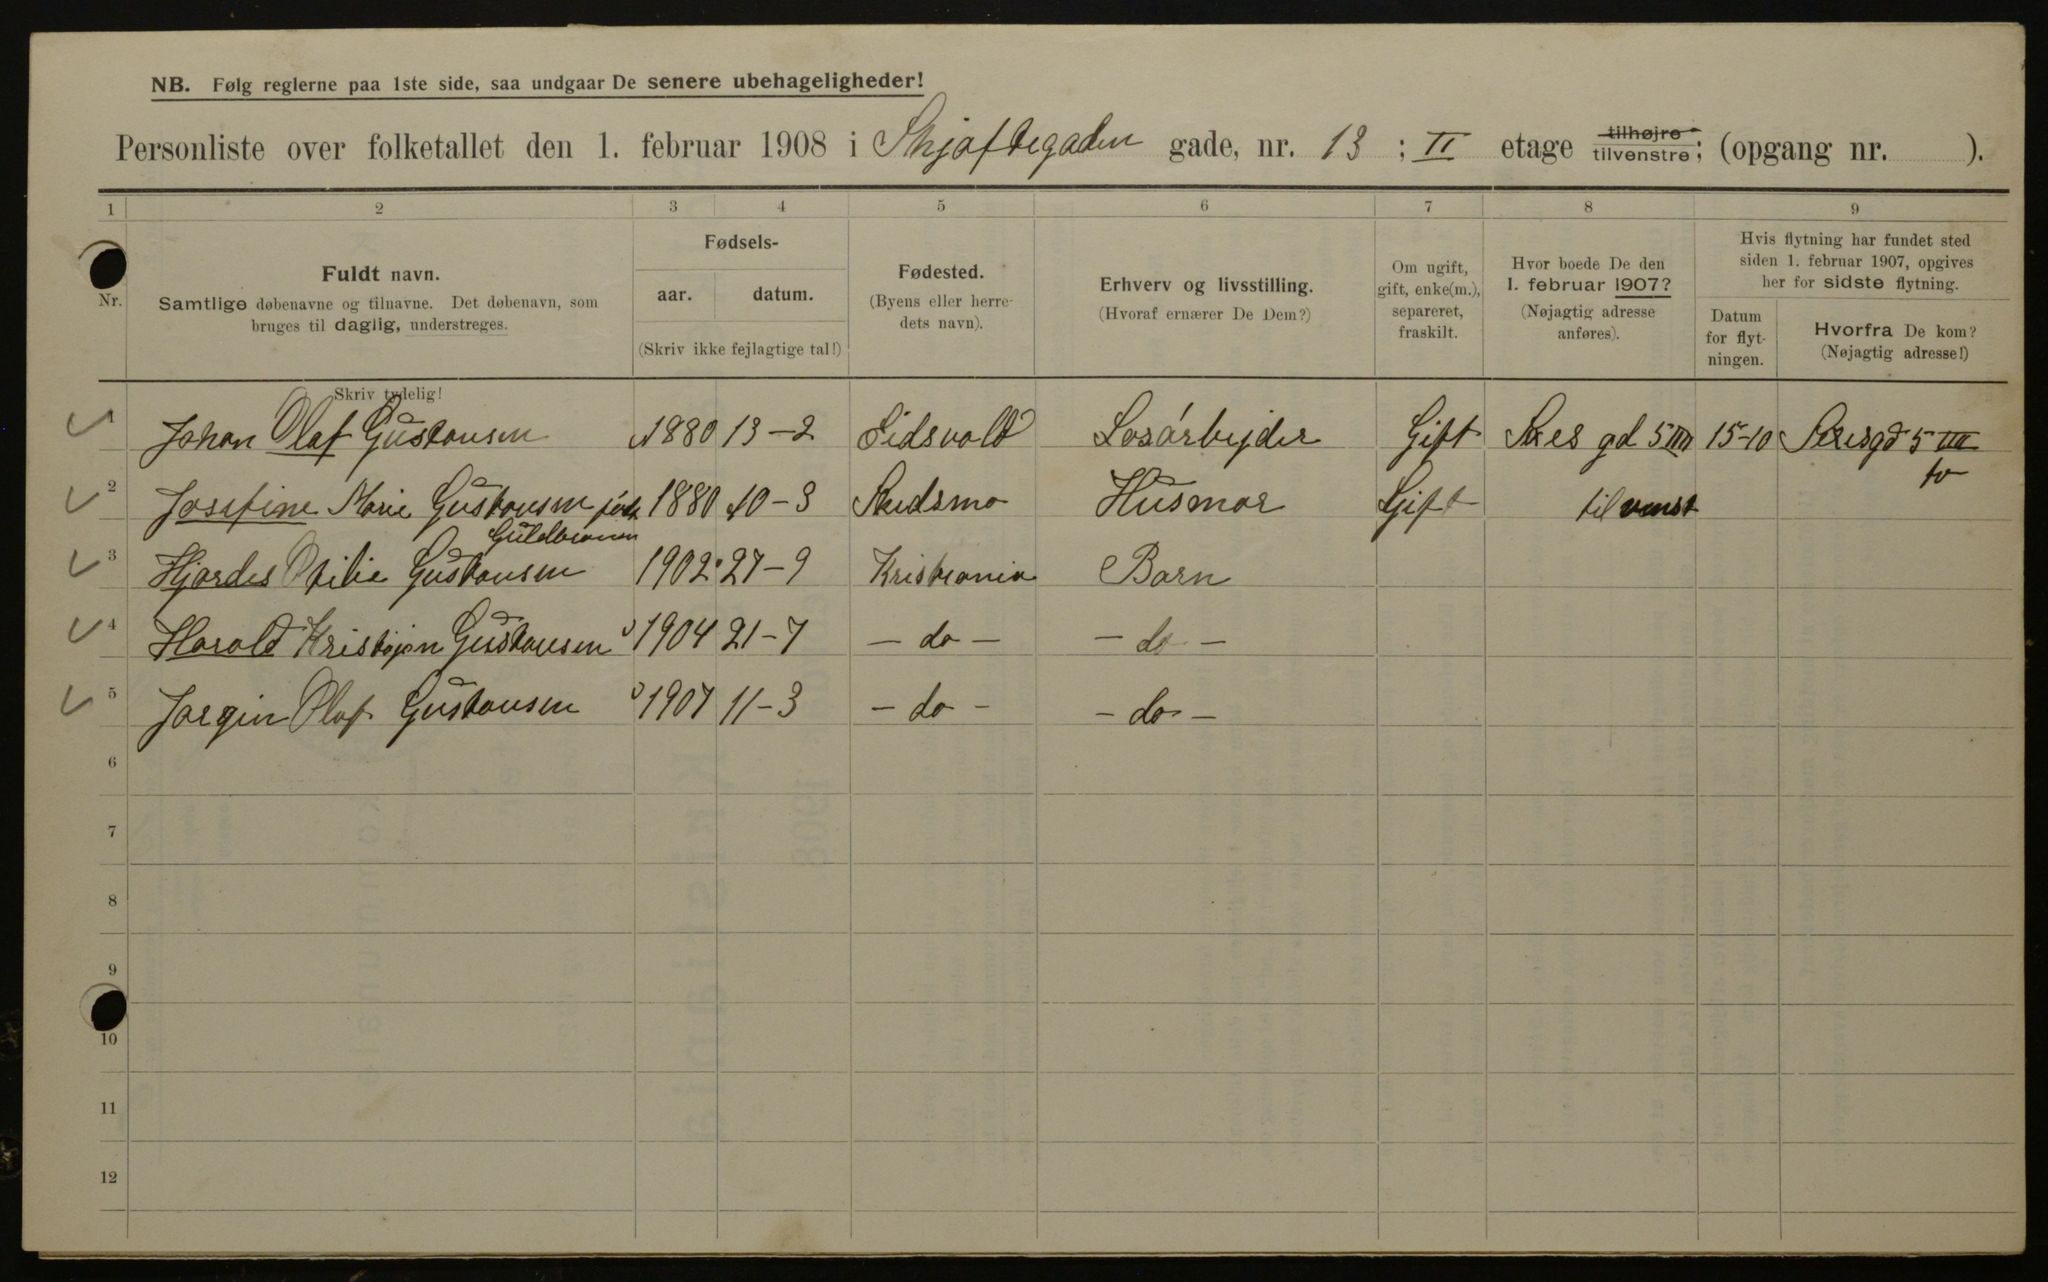 NB. Følg reglerne paa 1ste side, saa undgaar De senere ubehageligheder!
Personliste over folketallet den 1. februar 1908 i Skjoftegaden gade, nr. 13 ; II etage tilhøjre tilvenstre; (opgang nr. ).
1 2 3 4 5 6 7 8 9
Nr.
Fuldt navn.
Samtlige døbenavne og tilnavne. Det døbenavn, som
bruges til daglig, understreges.
Skriv tydelig!
Fødsels-
aar. datum.
(Skriv ikke fejlagtige tal!)
Fødested.
(Byens eller herre-
dets navn).
Erhverv og livsstilling.
(Hvoraf ernærer De Dem?)
Om ugift,
gift, enke(m.),
separeret,
fraskilt.
Hvor boede De den
1. februar 1907?
(Nøjagtig adresse
anføres).
Hvis flytning har fundet sted
siden 1. februar 1907, opgives
her for sidste flytning.
Datum
for flyt-
ningen.
Hvorfra De kom?
(Nøjagtig adresse!)
1 Johan Olaf Gustavsen 1880 13-2 Eidsvold Losarbejder Gift gd 5 III 15-10 5 III
2 Josefine Marie Gustavsen født 1880 10-3 Husmor Gift til venst tv
Guldbransen
3 Hjordes Otilie Gustavsen 1902 27-9 Kristiania Barn
4 Harald Kristjan Gustavsen 1904 21-7 - do - - do -
5 Jørgin Olaf Gustavsen 1907 11-3 - do - - do -
6
7
8
9
10
11
12